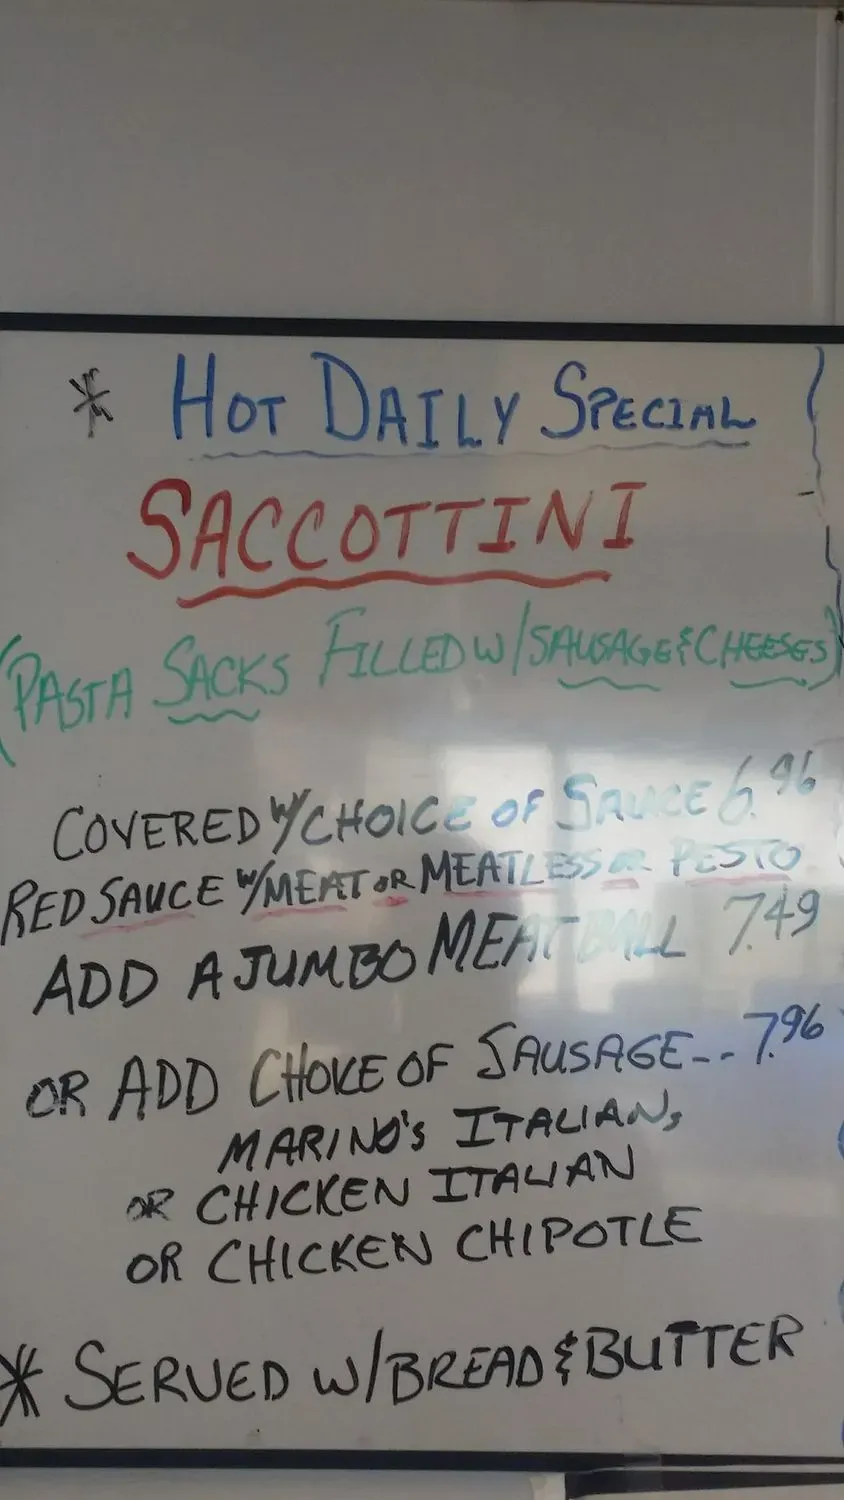 * HOT DAILY SPECIAL
SACCOTTINI
(PASTA SACKS FILLED W/SAUSAGE & CHEESES)
COVERED W/CHOICE OF SAUCE 6.96
RED SAUCE W/MEAT OR MEATLESS OR PESTO
ADD A JUMBO MEATBALL 7.49
OR ADD CHOICE OF SAUSAGE -- 7.96
MARINO'S ITALIAN,
OR CHICKEN ITALIAN
OR CHICKEN CHIPOTLE
* SERVED W/BREAD & BUTTER